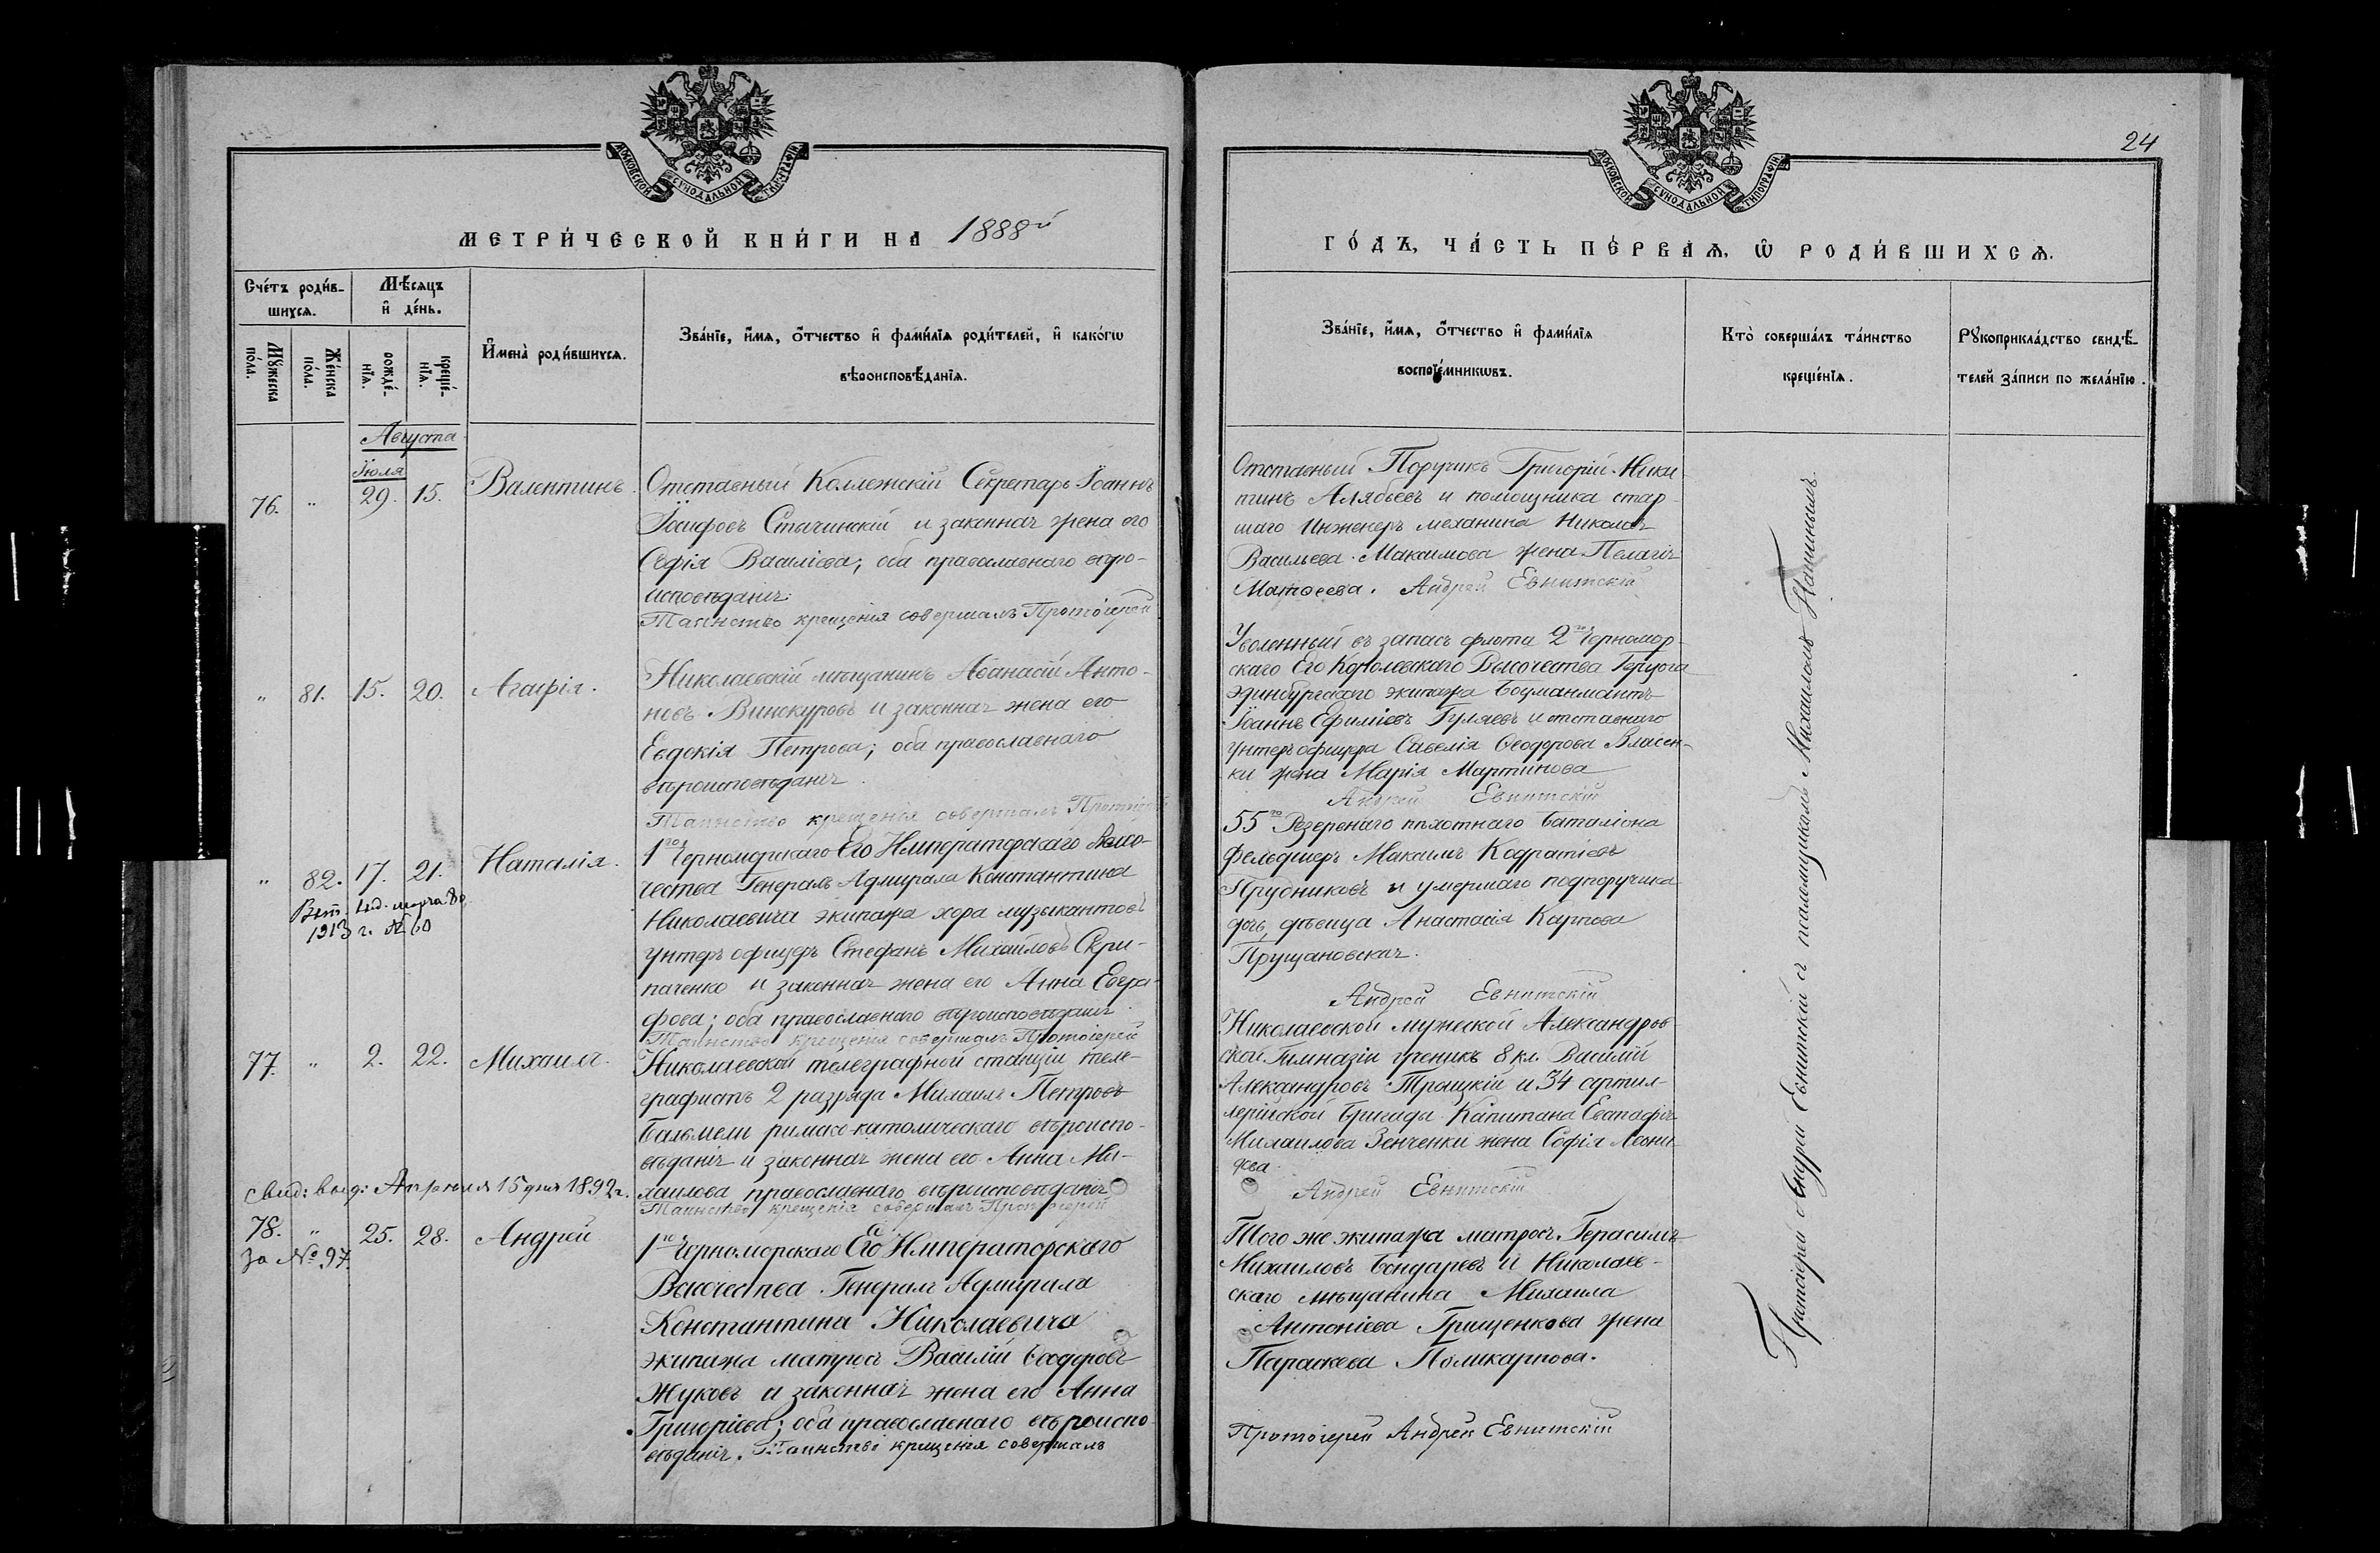 МОСКОВСКОЙ СУНОДАЛЬНОЙ ТИПОГРАФІИ
МЕТРИ́ЧЕСКОЙ КНИ́ГИ НА 1888й
Сче́тъ роди́в-
шихсѧ.
Мѣ́сяцъ
и҆ де́нь.
Мꙋ́жеска
по́ла.
Же́нска
по́ла.
рожде́-
нїѧ.
креще́-
нїѧ.
И҆мена̀ роди́вшихсѧ.
Зва́нїе, и҆́мѧ, ѻ҆́тчество и҆ фами́лїѧ роди́телей, и҆ како́гѡ
вѣроисповѣ́данїѧ.
Августа
Іюля
76. " 29. 15. Валентинъ.
Отставный Коллежскій Секретарь Іоаннъ
Іосифовъ Стычинскій и законная жена его
Софія Василіева; оба православнаго вѣро-
исповѣданія.
Таинство крещенія совершалъ Протоіерей
" 81. 15. 20. Агафія.
Николаевскій мѣщанинъ Аѳанасій Анто-
новъ Винокуровъ и законная жена его
Евдокія Петрова; оба православнаго
вѣроисповѣданія.
Таинство крещенія совершалъ Протоіерей
" 82. 17. 21. Наталія.
1913 г. № 60
1го Черноморскаго Его Императорскаго Высо-
чества Генералъ Адмирала Константина
Николаевича экипажа хора музыкантовъ
унтеръ офицеръ Стефанъ Михайловъ Скри-
паченко и законная жена его Анна Евгра-
фова; оба православнаго вѣроисповѣданія.
Таинство крещенія совершалъ Протоіерей
77. " 2. 22. Михаилъ.
Николаевской телеграфной станціи теле-
графистъ 2 разряда Михаилъ Петровъ
Бальмели римско-католическаго вѣроиспо-
вѣданія и законная жена его Анна Ми-
хаилова православнаго вѣроисповѣданія
Таинство крещенія совершалъ Протоіерей
свид: выд: Апрѣля 15 дня 1892 г.
за № 97.
78. " 25. 28. Андрей
1го Черноморскаго Его Императорскаго
Высочества Генералъ Адмирала
Константина Николаевича
экипажа матросъ Василій Ѳеодоровъ
Жуковъ и законная жена его Анна
Григоріева; оба православнаго вѣроиспо-
вѣданія. Таинство крещенія совершалъ
24
МОСКОВСКОЙ СУНОДАЛЬНОЙ ТИПОГРАФІИ
ГО́ДЪ, ЧА́СТЬ ПЕ́РВАѦ, Ѡ҆ РОДИ́ВШИХСѦ.
Зва́нїе, и҆́мѧ, ѻ҆́тчество и҆ фами́лїѧ
воспрїе́мникѡвъ.
Кто̀ соверша́лъ та́инство
креще́нїѧ.
Рꙋкоприкла́дство свидѣ́-
телей за́писи по жела́нїю.
Отставный Поручикъ Григорій Ники-
тинъ Алябьевъ и помощника стар-
шаго Инженеръ механика Николая
Васильева Максимова жена Пелагія
Матѳеева. Андрей Евнитскій
Уволенный въ запасъ флота 2го Черномор-
скаго Его Королевскаго Высочества Герцога
Эдинбургскаго экипажа Боцманматъ
Іоаннъ Ефиміевъ Гуляевъ и отставнаго
унтеръ офицера Савелія Ѳеодорова Власен-
ки жена Марія Мартинова
Андрей Евнитскій
55го Резервнаго пѣхотнаго баталіона
фельдшеръ Максимъ Кодратіевъ
Прудниковъ и умершаго подпоручика
дочь, дѣвица Анастасія Карпова
Прущановская.
Андрей Евнитскій
Николаевской мужеской Александров-
ской Гимназіи ученикъ 8 кл. Василій
Александровъ Троицкій и 34 артил-
лерійской бригады Капитана Евстафія
Михаилова Зенченки жена Софія Леони-
дова.
Андрей Евнитскій
Того же экипажа матросъ Герасимъ
Михаиловъ Бондаревъ и Николаев-
скаго мѣщанина Михаила
Антоніева Грищенкова жена
Параскева Поликарпова.
Протоіерей Андрей Евнитскій
Протоіерей Андрей Евнитскій съ псаломщикомъ Михаиломъ